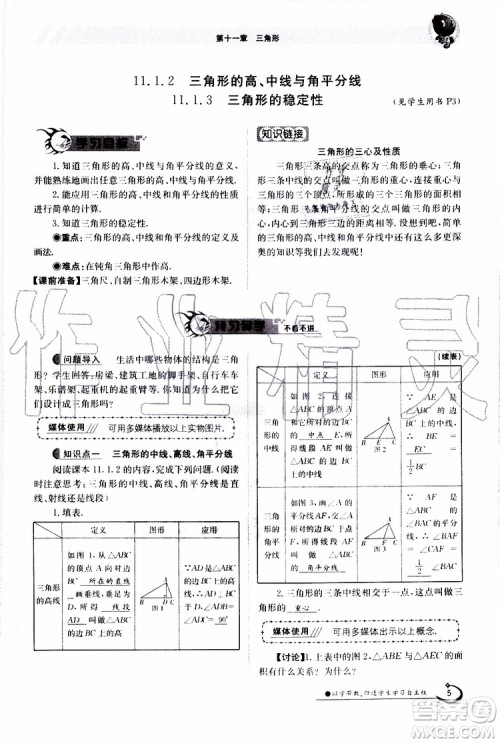 第十一章 三角形
11.1.2 三角形的高、中线与角平分线
11.1.3 三角形的稳定性
(见学生用书 P3)
学习目标
1. 知道三角形的高、中线与角平分线的定义,并能熟练地画出三角形的高、中线与角平分线.
2. 能应用三角形的高、中线与角平分线的性质进行简单的计算.
3. 知道三角形的稳定性.
◉重点:三角形的高、中线和角平分线的定义及画法.
◉难点:在钝角三角形中作高.
【课前准备】三角尺,自制三角形木架、四边形木架.
知识链接
三角形的三心及性质
三角形三条高的交点称为三角形的垂心;三角形三条中线的交点称为三角形的重心,连接重心与顶点
三角形三条角平分线的交点叫做三角形的内心
奥的性质.
预习导学 不看不讲
问题导入 生活中哪些物体的结构是三角形?学生回答:房梁、建筑工地的脚手架、自行车车架、起重机的起重臂等.为什么它们要做成三角形?
媒体使用 可用多媒体播放以上实物图片.
知识点一 三角形的中线、高线、角平分线
阅读课本 11.1.2 的内容,完成下列问题.(阅读时注意思考:三角形的中线、高线、角平分线是射线、直线还是线段)
1. 填表.
定义 图形 应用
三角形的高线
如图 1,从△ABC 的顶点 A 向对边 BC 所在的直线 画垂线,垂足为 D,所得 线段 AD 叫做△ABC 的边 BC 上的高
∵AD 是△ABC 的边 BC 上的高,∴AD⊥BC,∠ADB=∠ADC= 90°
(续表)
定义 图形 应用
三角形的中线
如图 2,连接△ABC 的顶点 A 和它所对的边 BC 的 中点 E,所得线段 AE 叫做△ABC 的边 BC 上的中线
∵AE 是△ABC 的边 BC 上的中线,
三角形的角平分线
∠BAC
叫做△ABC 的 角平分线
∵AF 是△ABC 的角平分线,
2. 三角形的三条中线相交于一点,这点叫做三角形的 重心 .
媒体使用 可用多媒体出示以上概念.
【讨论】1. 上表中的图 2,△ABE 与△AEC 的面积有什么关系?为什么?
以学带教,促进学生学习自主性
5
作业精灵